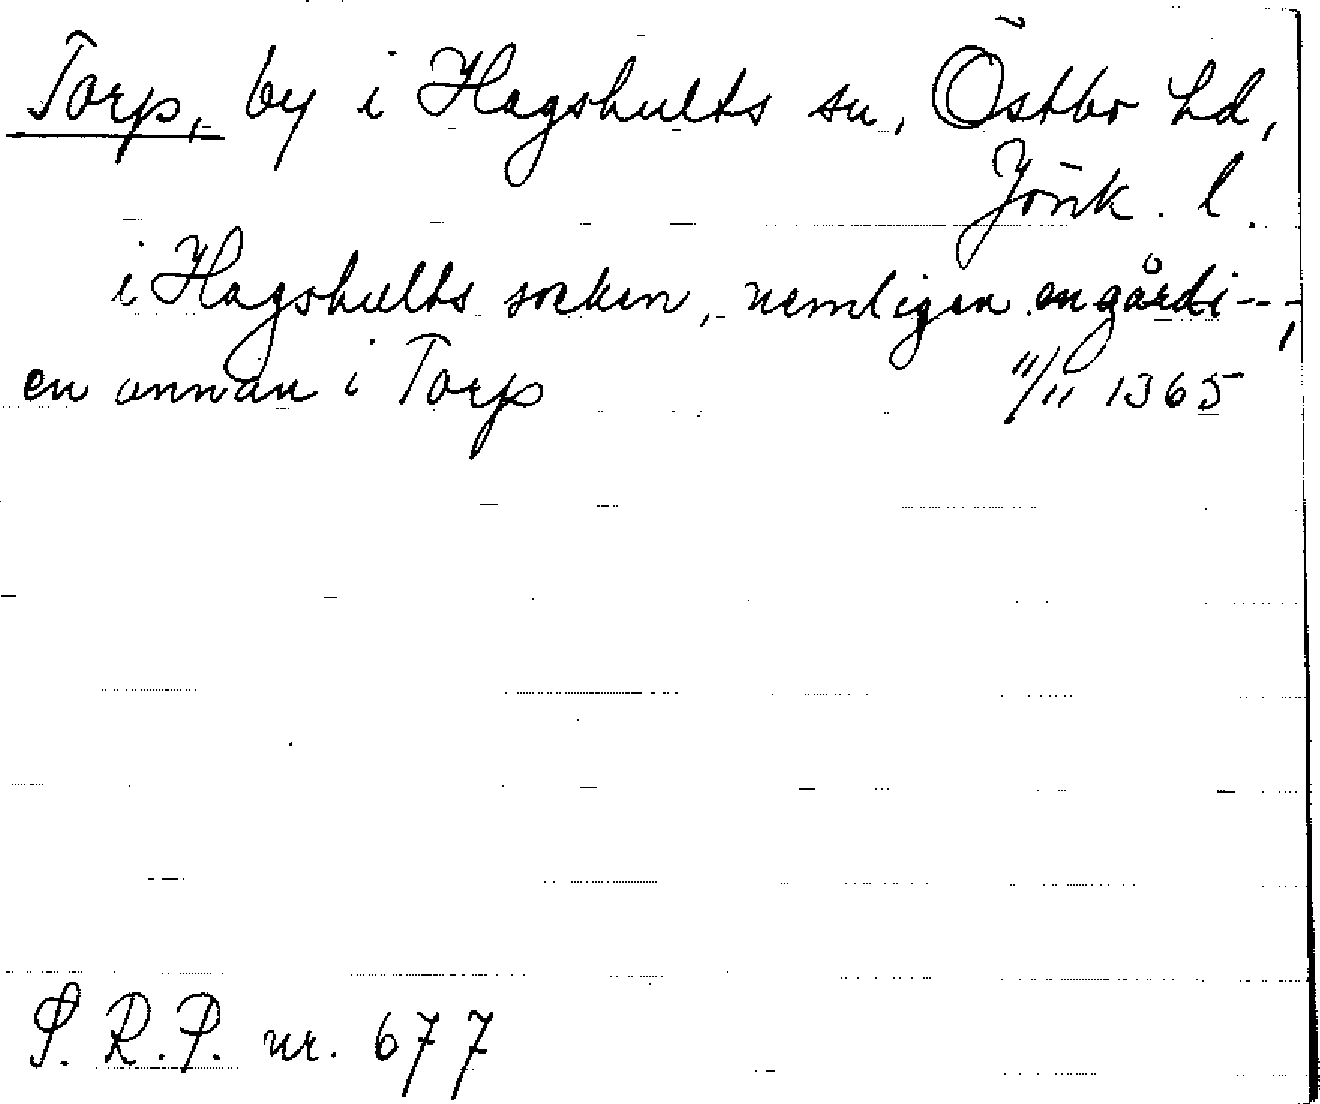 Torp, by i Hagshults sn, Östbo hd,
Jönk. l.
i Hagshults socken, nemligen en gård i ---,
en annan i Torp 11/11 1365
S. R. P. nr. 677